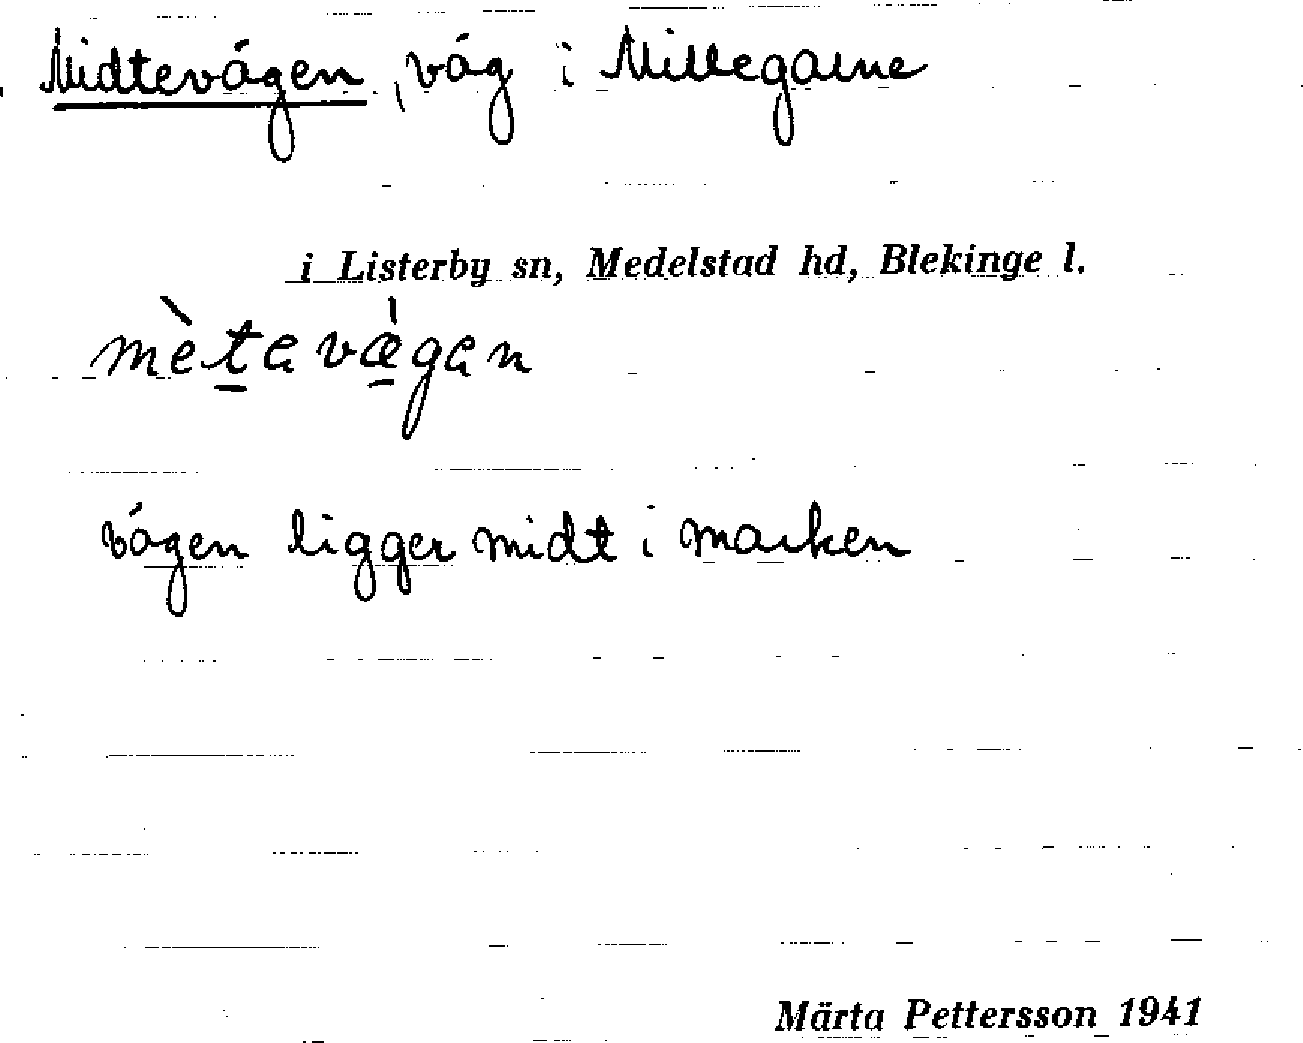 Midtevägen, väg i Millegarne
i Listerby sn, Medelstad hd, Blekinge l.
mètavǽgan
vägen ligger midt i marken
Märta Pettersson 1941